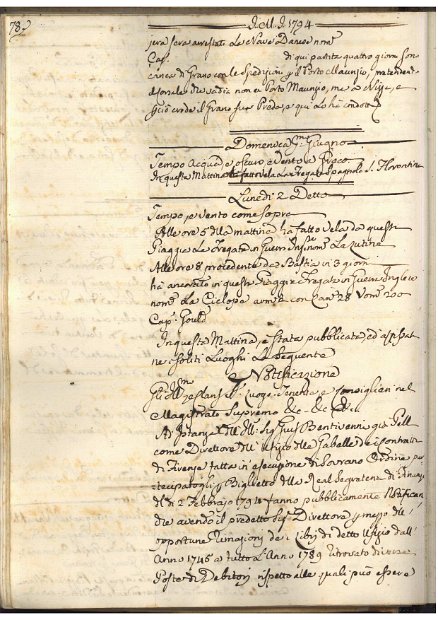 78
Dell' 1794
jera sera arrestato La Nave Danese nom.ta
Cap.
di qui partita quattro giorni sono
carica di Grano con le Spedizioni p. il Porto Maurizio, pretendendosi
che sia diretta non a Porto Maurizio, ma a Nizza, e
perciò crede il Grano sua Preda, e qui lo ha condotta
Domenica P.mo Giugno
Tempo Acqua, e oscuro e Vento a Greco
In questa Mattina ha fatto vela La Fregata Spagnola S. Florentina
Lunedi 2 Detto
Tempo, e Vento come sopra
Alle ore 5 di mattina ha fatto vela da questa
Piaggia La Fregata in Guerra Inglese nom.ta La
Alle ore 8 procedente da Bastia in 3 giorni
ha ancorato in questa Piaggia Fregata in Guerra Inglese
nom.ta La Ciclope arm.ta con Can. 28 Uom. 200
Cap. Gould
In questa Mattina è stata pubblicata, ed affissa
ne' soliti Luoghi La seguente
Notificazione
Gl'Ill.mi Luogo Tenente, e Consiglieri nel
Magistrato Supremo &c. &c. &c.
Ad Istanza dell' Ill. Sig. Bentivenni qui Pell
come Direttore dell' Ufizio delle Gabelle de' contratti
di Firenze fatta in esecuzione di Sovrano Ordine par-
tecipatogli p. Biglietto della Real Segreteria di Finanze
del dì 2 Febbraio 1794 fanno pubblicamente Notificare
che avendo il predetto Sig. Direttore p. mezzo dell'
opportune Rimozioni de' Libri di detto Ufizio dall'
Anno 1745 a tutto l' Anno 1789 ritrovato diverse
Poste di Debitori rispetto alle quali può essere